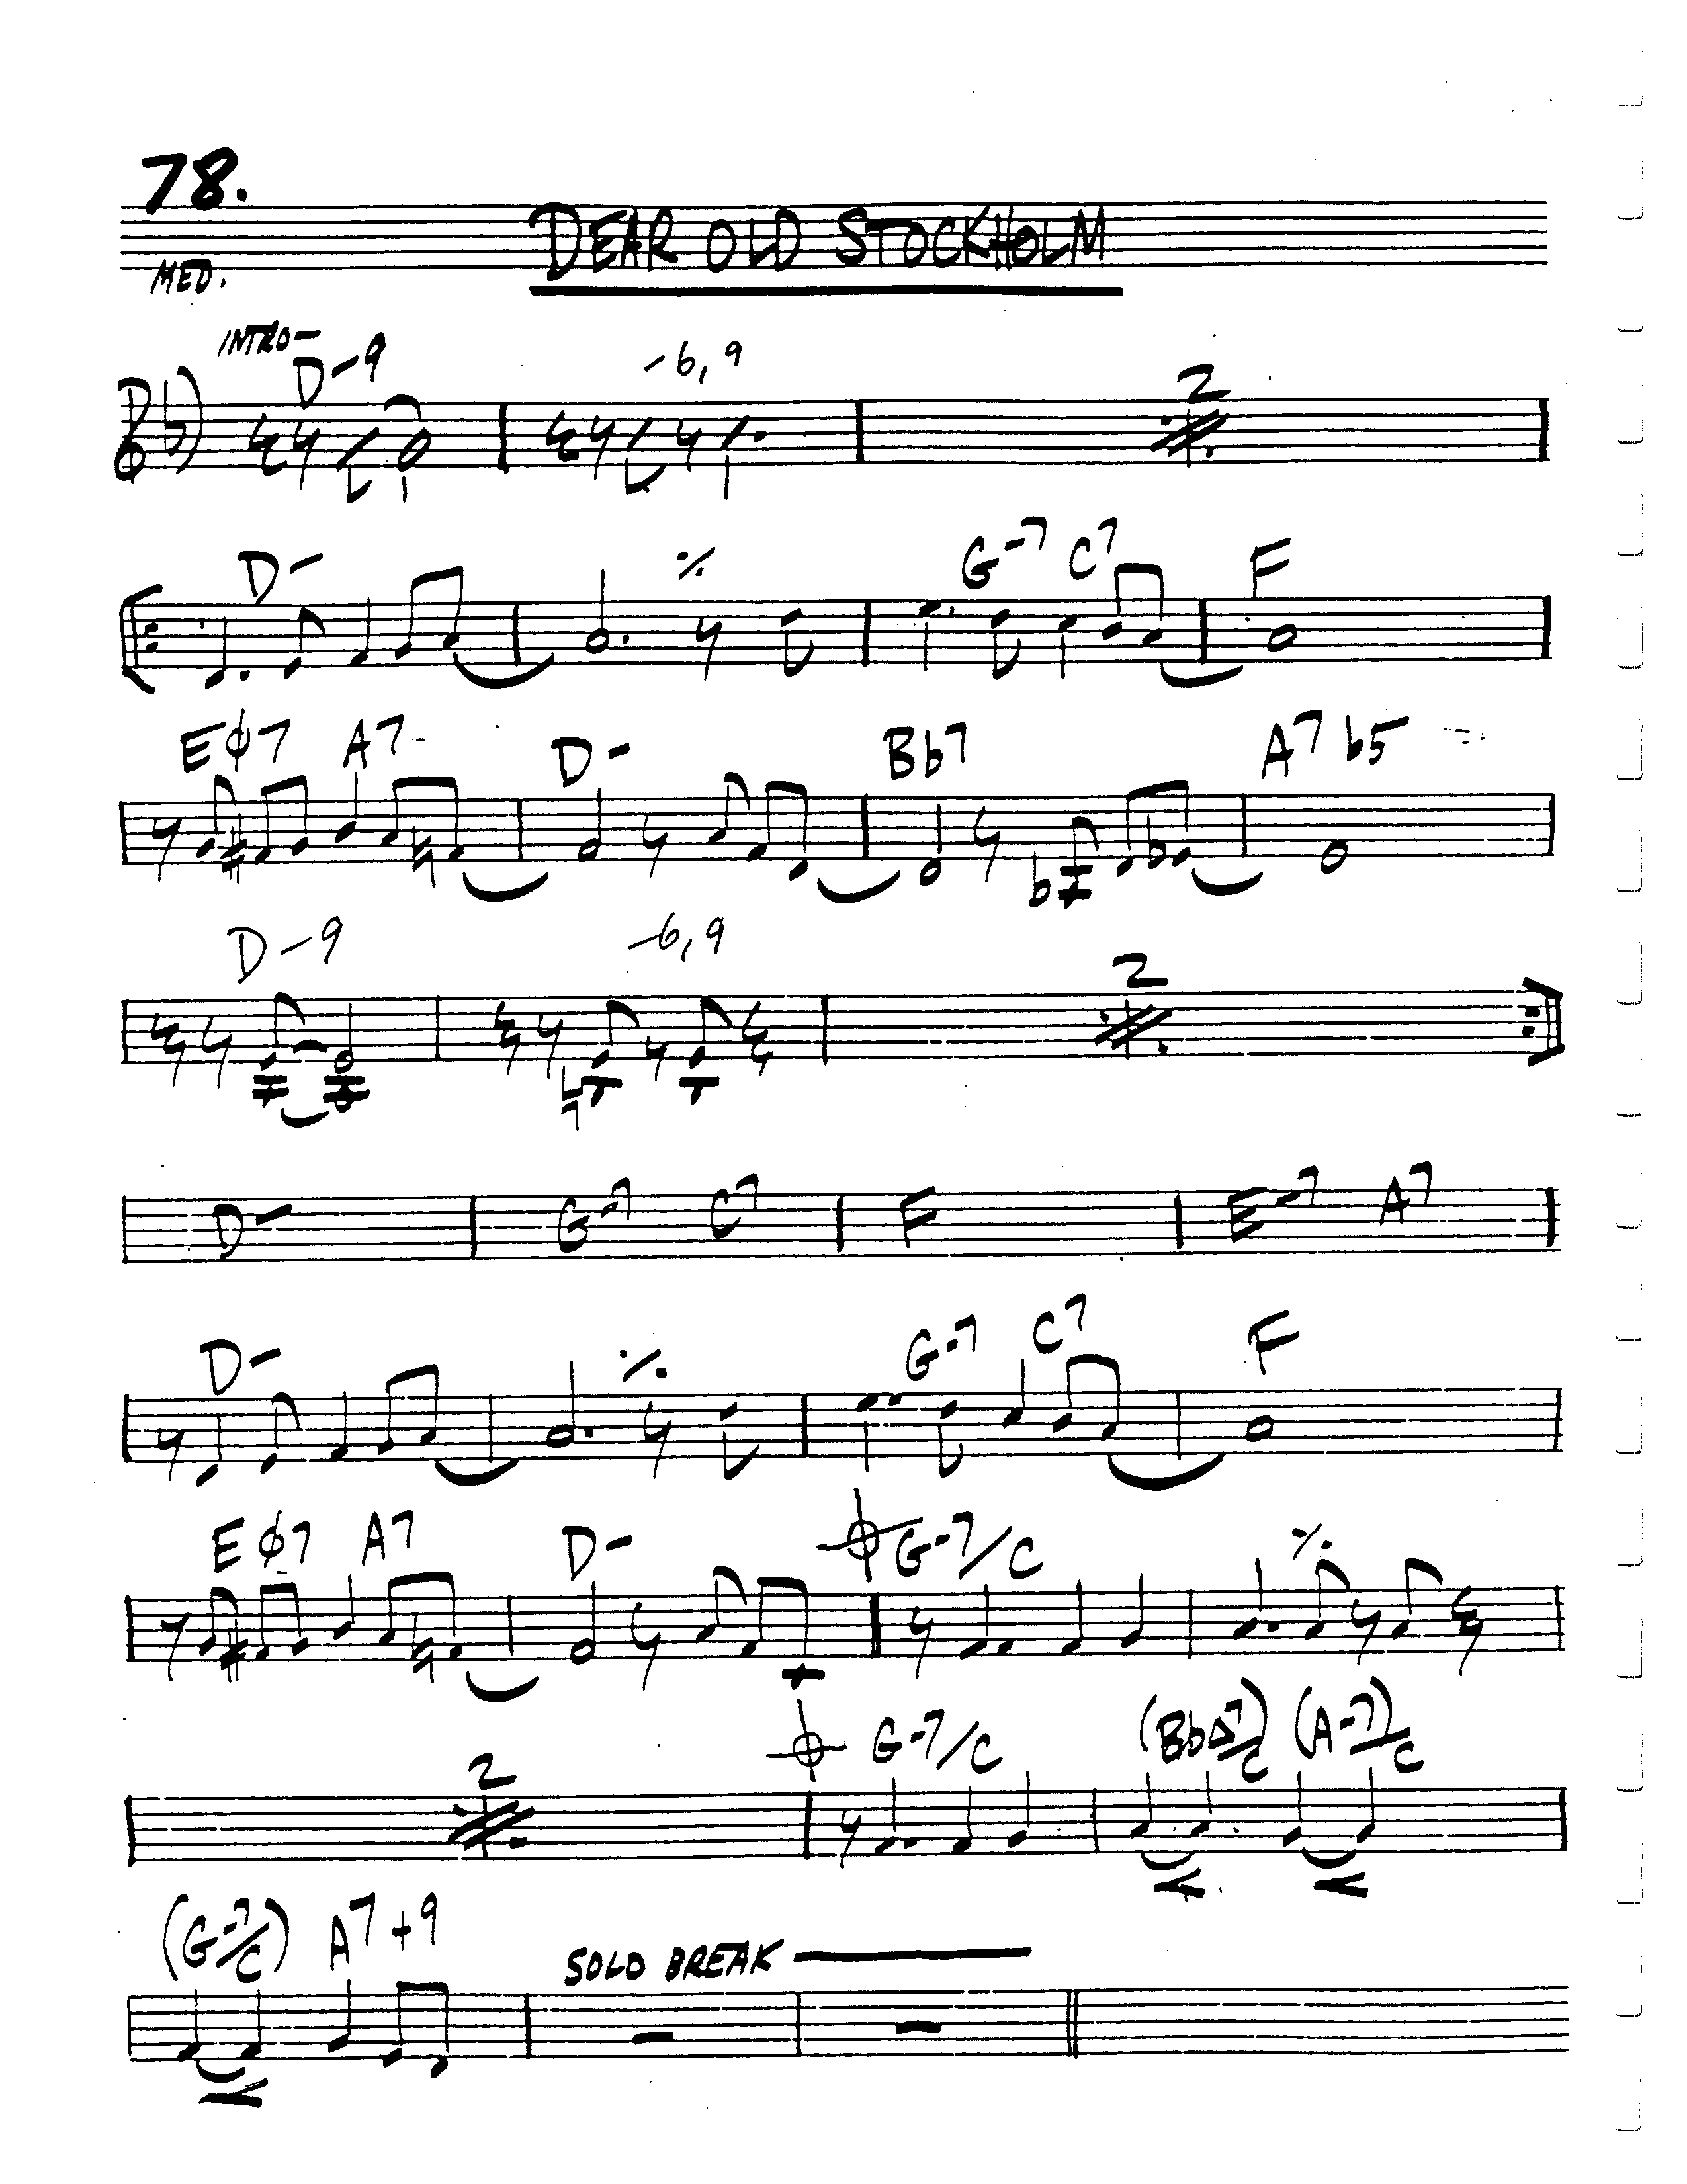 78.
DEAR OLD STOCKHOLM
MED.
INTRO-
D-9 -6,9
2
D- ٪ G-7 C7 F
Eϕ7 A7 D- Bb7 A7 b5
D-9 -6,9
2
D- G-7 C7 F E-7 A7
D- ٪ G-7 C7 F
Eϕ7 A7 D- G-7/C ٪
2 G-7/C (BbΔ7/C) (A-7)/C
(G-7/C) A7+9 SOLO BREAK